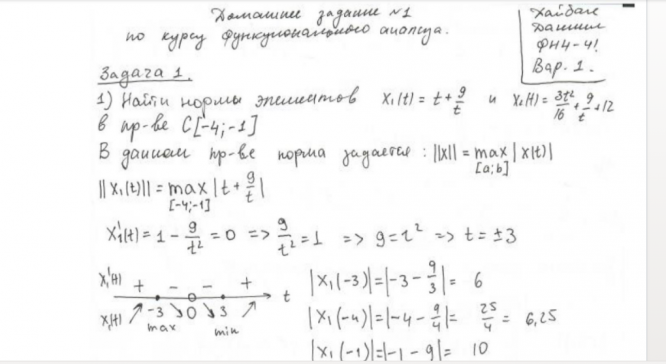 Домашнее задание №1
по курсу функционального анализа.
Хайбале
Даниил
ФН4-41
Вар. 1.
Задача 1.
1) Найти нормы элементов x₁(t) = t + 9/t и x₂(t) = 3t²/16 + 9/t + 12
в пр-ве C[-4;-1]
В данном пр-ве норма задается: ||x|| = max |x(t)|
[a;b]
||x₁(t)|| = max |t + 9/t|
[-4;-1]
x₁'(t) = 1 - 9/t² = 0 => 9/t² = 1 => 9 = t² => t = ±3
x₁'(t) + - - + t
x₁(t) ↗ -3 ↘ 0 ↘ 3 ↗
max min
|x₁(-3)| = |-3 - 9/3| = 6
|x₁(-4)| = |-4 - 9/4| = 25/4 = 6,25
|x₁(-1)| = |-1 - 9| = 10